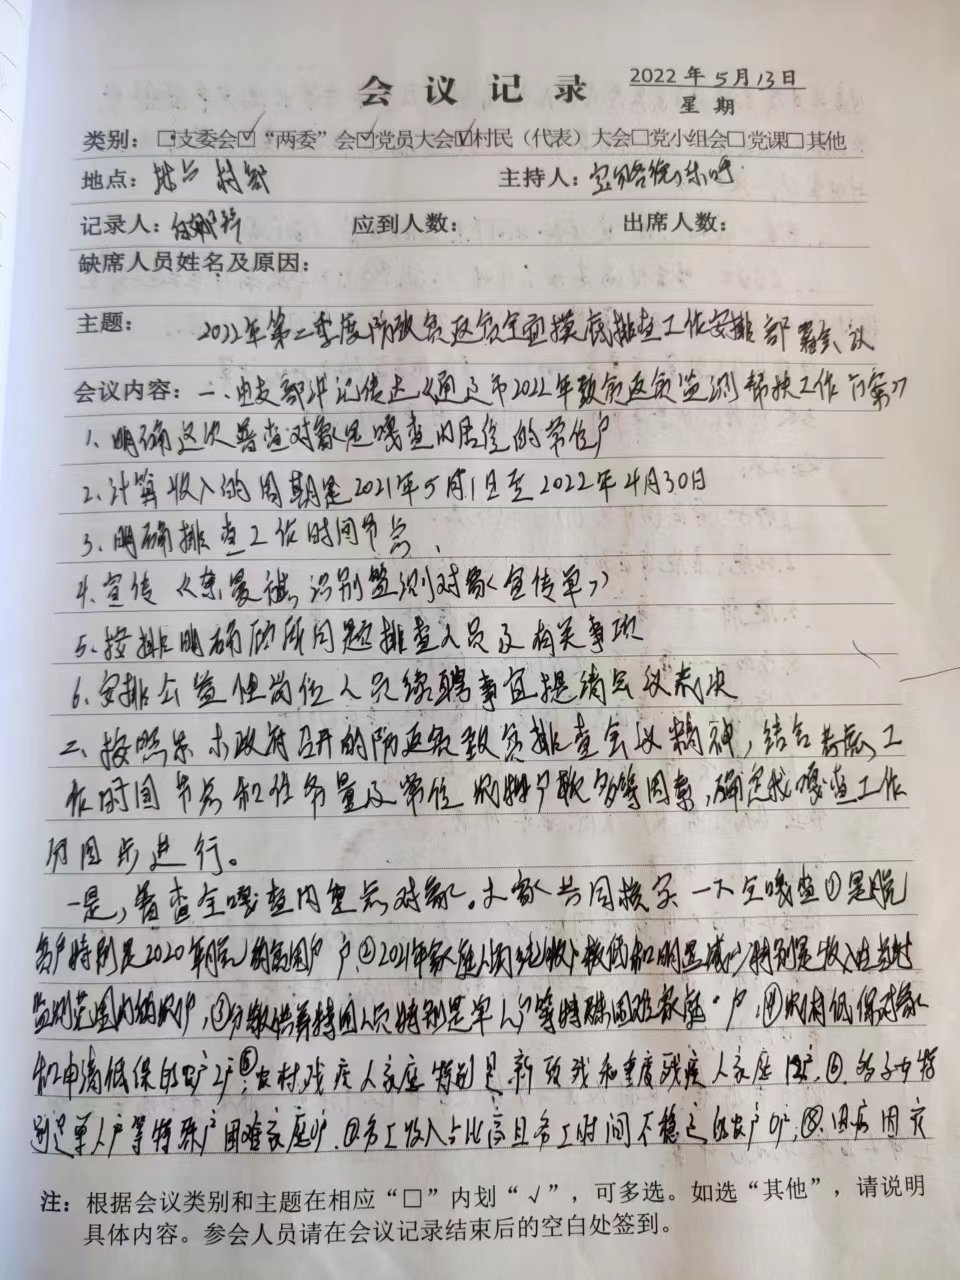 会议记录
2022年5月13日
星期
类别：□支委会☑“两委”会☑党员大会☑村民（代表）大会□党小组会□党课□其他
地点： 村部
主持人：
记录人：
应到人数：
出席人数：
缺席人员姓名及原因：
主题：
2022年第二季度防致贫返贫全面摸底排查工作安排部署会议
会议内容：一、由支部书记传达《通辽市2022年致贫返贫监测帮扶工作方案》
1、明确这次普查对象是嘎查内居住的常住户
2、计算收入的周期是2021年5月1日至2022年4月30日
3、明确排查工作时间节点、
4、宣传《 识别监测对象《宣传单》
5、安排明确 问题排查人员及有关事项
6、安排公益性岗位人员续聘事宜提请会议表决
二、按照 政府召开的防返贫致贫排查会议精神，结合 工
作时间节点和任务量及常住 户数多等因素，确定我嘎查工作
分 步进行。
一是，普查全嘎查内重点对象。大家共同核实一下全嘎查①是脱
贫户特别是2020年脱 户，②2021年家庭人均纯收入较低和明显减少特别是收入在
监测范围内的农户，③分散供养特困人员特别是单人户等特殊困难家庭 户，④农村低保对象
和申请低保的农户2户⑤农村残疾人家庭特别是新致残和重度残疾人家庭 户，⑥多子女特
别是单人户等特殊户困难家庭0户，⑦务工收入占比高且务工时间不稳定的农户0户；⑧因病因灾
注：根据会议类别和主题在相应“□”内划“√”，可多选。如选“其他”，请说明
具体内容。参会人员请在会议记录结束后的空白处签到。